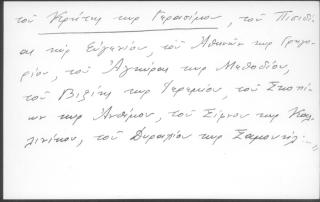 τοῦ Κρήτης κὺρ Γερασίμου, τοῦ Πισιδί-
ας κὺρ Εὐγενίου, τοῦ Ἀθηνῶν κὺρ Γρηγο-
ρίου, τοῦ Ἀγκύρας κὺρ Μεθοδίου,
τοῦ Βιζύης κὺρ Ἱερεμίου, τοῦ Σκοπί-
ων κὺρ Ἀνθίμου, τοῦ Σίφνου κὺρ Καλ-
λινίκου, τοῦ Δυρραχίου κὺρ Σαμουήλ...»